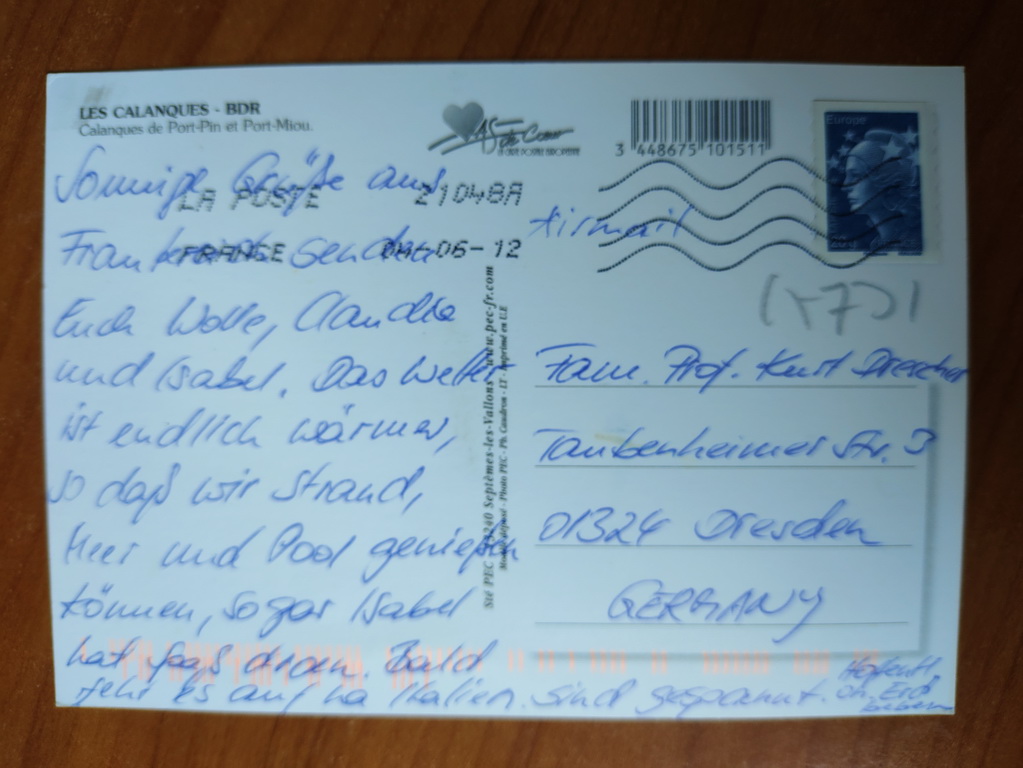 LES CALANQUES - BDR
Calanques de Port-Pin et Port-Miou.
3 448675 101511
Europe
LA POSTE 21048A
FRANCE 04-06-12
Sonnige Grüße aus
Frankreich senden
Euch Wolle, Claudia
und Isabel. Das Wetter
ist endlich wärmer,
so daß wir Strand,
Meer und Pool genießen
können, sogar Isabel
hat Spaß daran. Bald
geht es auf na Italien. Sind gespannt.
Hoffentl.
oh. Erd
beben
Sté PEC 13240 Septèmes-les-Vallons - www.pec-fr.com
Airmail
Fam. Prof. Kurt Drescher
Taubenheimer Str. 3
01324 Dresden
GERMANY